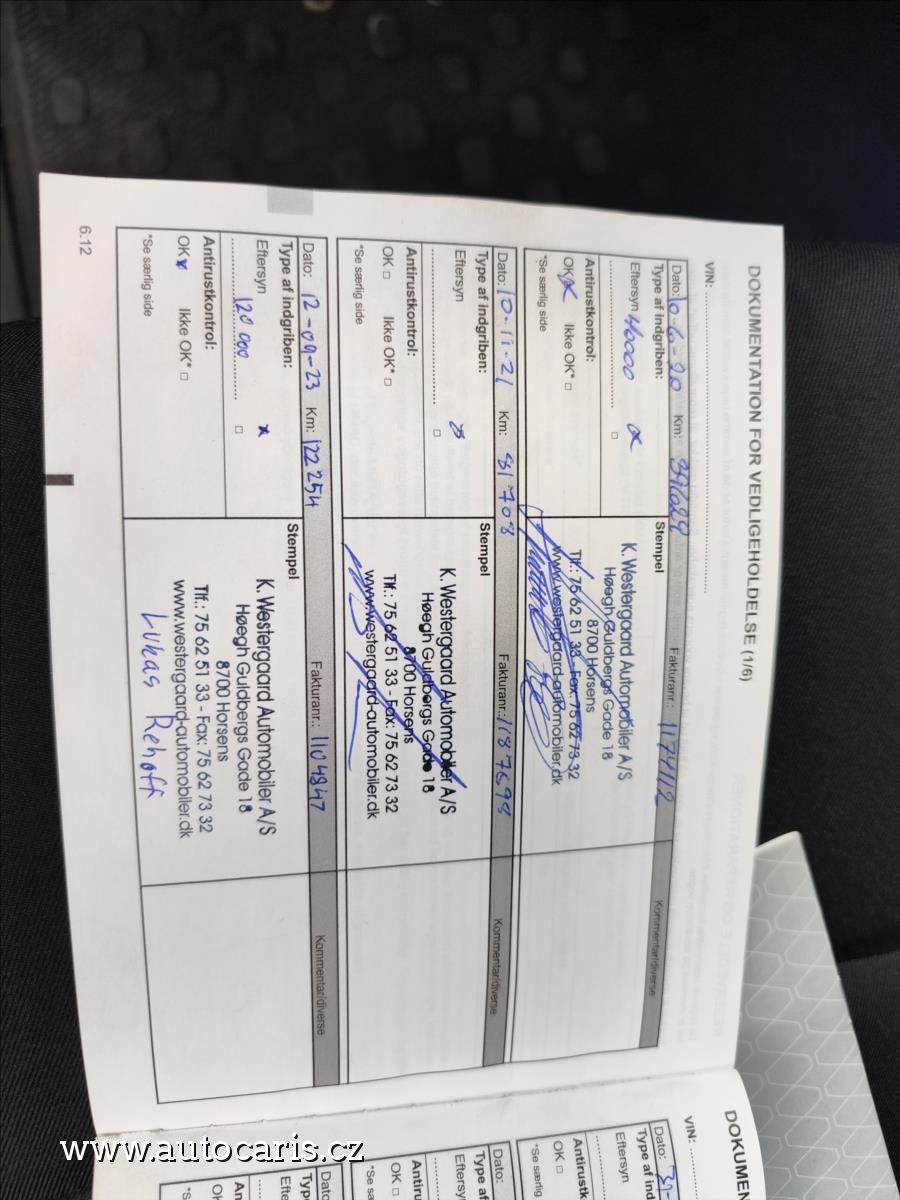 DOKUMENTATION FOR VEDLIGEHOLDELSE (1/6)
VIN: ..........................................
Dato: 16-6-20 Km: 39629 Fakturanr.: 1174112 Kommentar/diverse
Type af indgriben: Stempel
Eftersyn 40000
Antirustkontrol:
OK Ikke OK* □
*Se særlig side
K. Westergaard Automobiler A/S
Høegh Guldbergs Gade 18
8700 Horsens
Tlf.: 75 62 51 33 - Fax: 75 62 73 32
www.westergaard-automobiler.dk
Dato: 10-11-21 Km: 81708 Fakturanr.: 1187698 Kommentar/diverse
Type af indgriben: Stempel
Eftersyn
Antirustkontrol:
OK □ Ikke OK* □
*Se særlig side
K. Westergaard Automobiler A/S
Høegh Guldbergs Gade 18
8700 Horsens
Tlf.: 75 62 51 33 - Fax: 75 62 73 32
www.westergaard-automobiler.dk
Dato: 12-09-23 Km: 122254 Fakturanr.: 1104847 Kommentar/diverse
Type af indgriben: Stempel
Eftersyn x
120 000
Antirustkontrol:
OK x Ikke OK* □
*Se særlig side
K. Westergaard Automobiler A/S
Høegh Guldbergs Gade 18
8700 Horsens
Tlf.: 75 62 51 33 - Fax: 75 62 73 32
www.westergaard-automobiler.dk
Lukas Rehoff
6.12
DOKUMEN
VIN:
Dato: 30-
Type af ind
Eftersyn
Antirustk
OK □
*Se særlig
Dato:
Type af
Eftersy
Antiru
OK □
*Se sæ
Dato
Typ
Efte
An
OK
*S
www.autocaris.cz